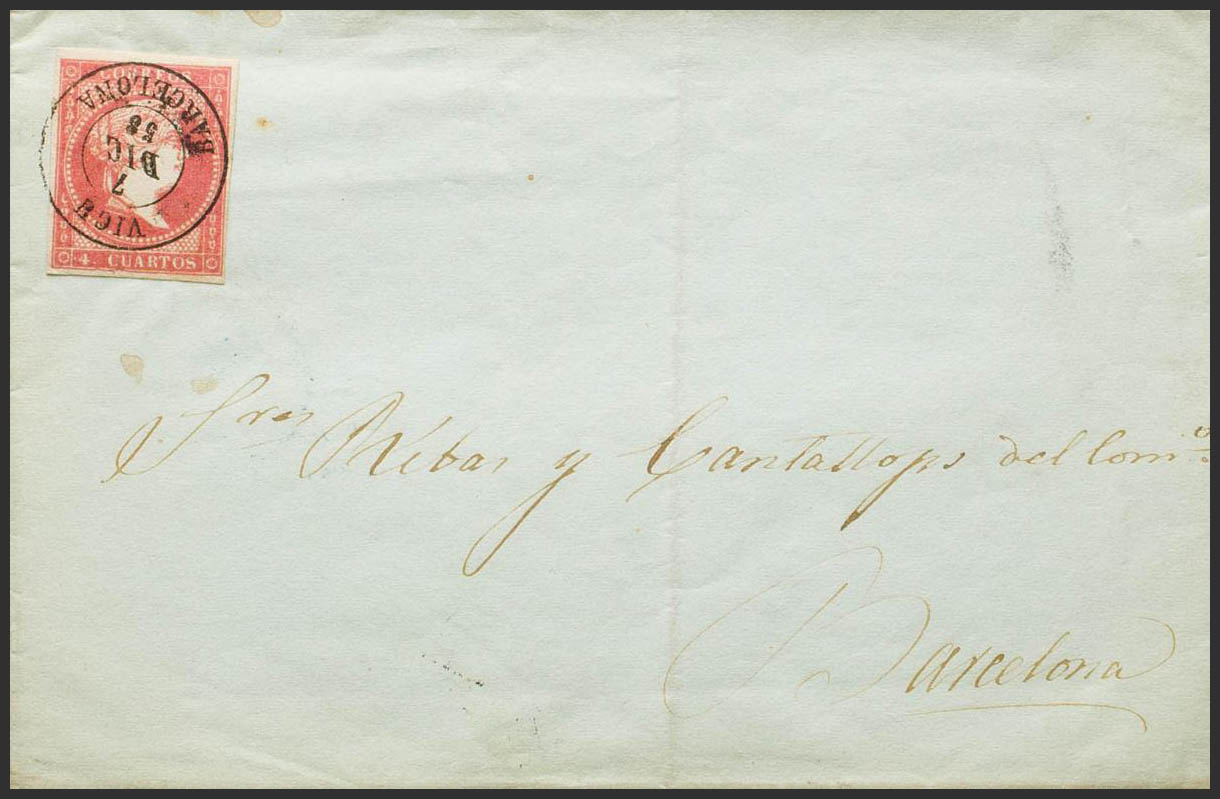 CORREOS
4. CUARTOS
VICH
7
DIC
58
BARCELONA
Sres Ribas y Cantallops del Comº
Barcelona